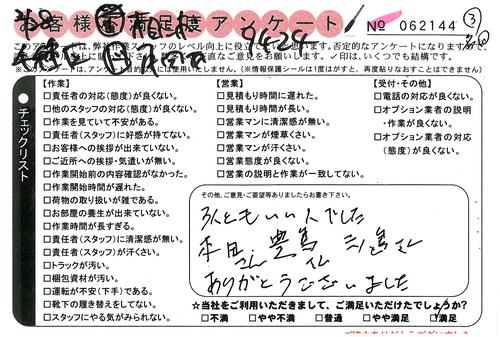 お客様満足度アンケート
No 062144
3
このアンケートは、弊社作業スタッフのレベル向上に役立
います。否定的なアンケートになりますので、
直なご意見をお願いします。✓印は、いくつでも結構です。
(※このアンケートは、アンケート目的以外には使用いたしません。) (※情報保護シールは1度はがすと、再度貼りなおすことはできません)
チェックリスト
【作業】
□責任者の対応(態度)が良くない。
□他のスタッフの対応(態度)が良くない。
□作業を見ていて不安がある。
□責任者(スタッフ)に好感が持てない。
□お客様への挨拶が出来ていない。
□ご近所への挨拶・気遣いが無い。
□作業開始前の内容確認がなかった。
□作業開始時間が遅れた。
□荷物の取り扱いが雑である。
□お部屋の養生が出来ていない。
□作業時間が長すぎる。
□責任者(スタッフ)に清潔感が無い。
□責任者(スタッフ)が汗くさい。
□トラックが汚い。
□梱包資材が汚い。
□運転が不安(下手)である。
□靴下の履き替えをしてない。
□スタッフにやる気がみられない。
【営業】
□見積もり時間に遅れた。
□見積もり時間が長い。
□営業マンに清潔感が無い。
□営業マンが煙草くさい。
□営業マンが汗くさい。
□営業態度が良くない。
□営業の説明と作業が一致してない。
【受付・その他】
□電話の対応が良くない。
□オプション業者の説明
・作業が良くない。
□オプション業者の対応
(態度)が良くない。
その他、ご意見・ご要望等ありましたらお書き下さい。
3人ともいい人でした
本田さん 豊島さん 三島さん
ありがとうございました
☆当社をご利用いただきまして、ご満足いただけたでしょうか?
□不満 □やや不満 □普通 □やや満足 □満足